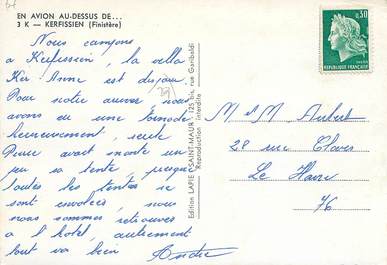 EN AVION AU-DESSUS DE...
3 K — KERFISSIEN (Finistère)
Nous campons
à Kerfissien, la villa
Ker Anne est
Pour notre arrivée nous
avons eu une
heureusement, seule
avait monté un
peu sa tente, presque
toutes les tentes se
sont envolées, nous
nous sommes retrouvés
à l'hôtel, autrement
tout va bien André
Edition LAPIE - SAINT-MAUR - 125 bis, rue Garibaldi
Reproduction interdite
0,30
REPUBLIQUE FRANÇAISE
M et M Aubert
28 rue Cloves
Le Havre
76